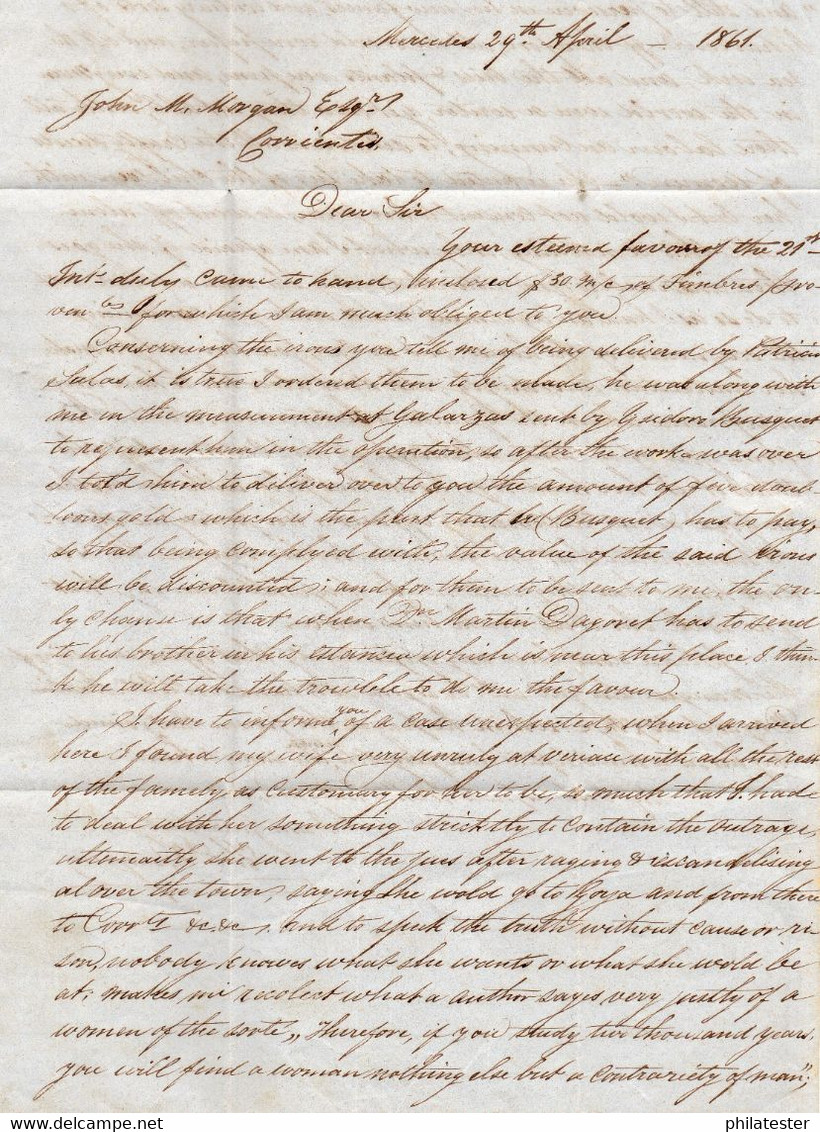 Mercedes 29th April – 1861.
John M. Morgan Esqr
Corrientes
Dear Sir
Your esteemed favour of the 21st
Inst duly came to hand, inclosed $50 m/c of Timbres pro-
ven for which I am much obliged to you
Concerning the irons you tell me of being delivered by Patricio
Salas, it is true I ordered them to be made, he was along with
me in the measurement at Galarzas sent by Ysidoro Busquet
to represent him in the operation, so after the work was over
I told him to deliver over to you the amount of five doub-
loons gold which is the part that (Busquet) has to pay,
so that being complyed with, the value of the said irons
will be discounted; and for them to be sent to me, the on-
ly chanse is that when Dn Martin Dagorret has to send
to his brother in his estancia which is near this place I thin-
k he will take the trouble to do me the favour.
I have to inform you of a case unexpected, when I arrived
here I found my wife very unruly at variace with all the rest
of the famely as customary for her to be, so much that I had
to deal with her something stricktly to contain the outrage,
ultemaitly she went to the jues after raging & escandelising
al over the town, saying she wold go to Goya and from there
to Corrts &c. &c, and to speek the truth without cause or ri-
son, nobody knowes what she wants or what she wold be
at; makes me recolect what a author sayes very justly of a
women of the sorte „Therefore, if you study ten thousand years,
you will find a woman nothing else but a contrariety of man";
philatester